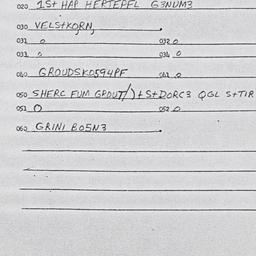 020 1St HAP HERTEPFL G3NUM3
030 VELStKORN,
031 0 032 0
033 0 034 0
040 GROUDSK0594PF 041 0
050 SHERC FUM GROUT/)tStDORC3 QGL StTIR
051 O 052 0
060 GRINI BO5N3